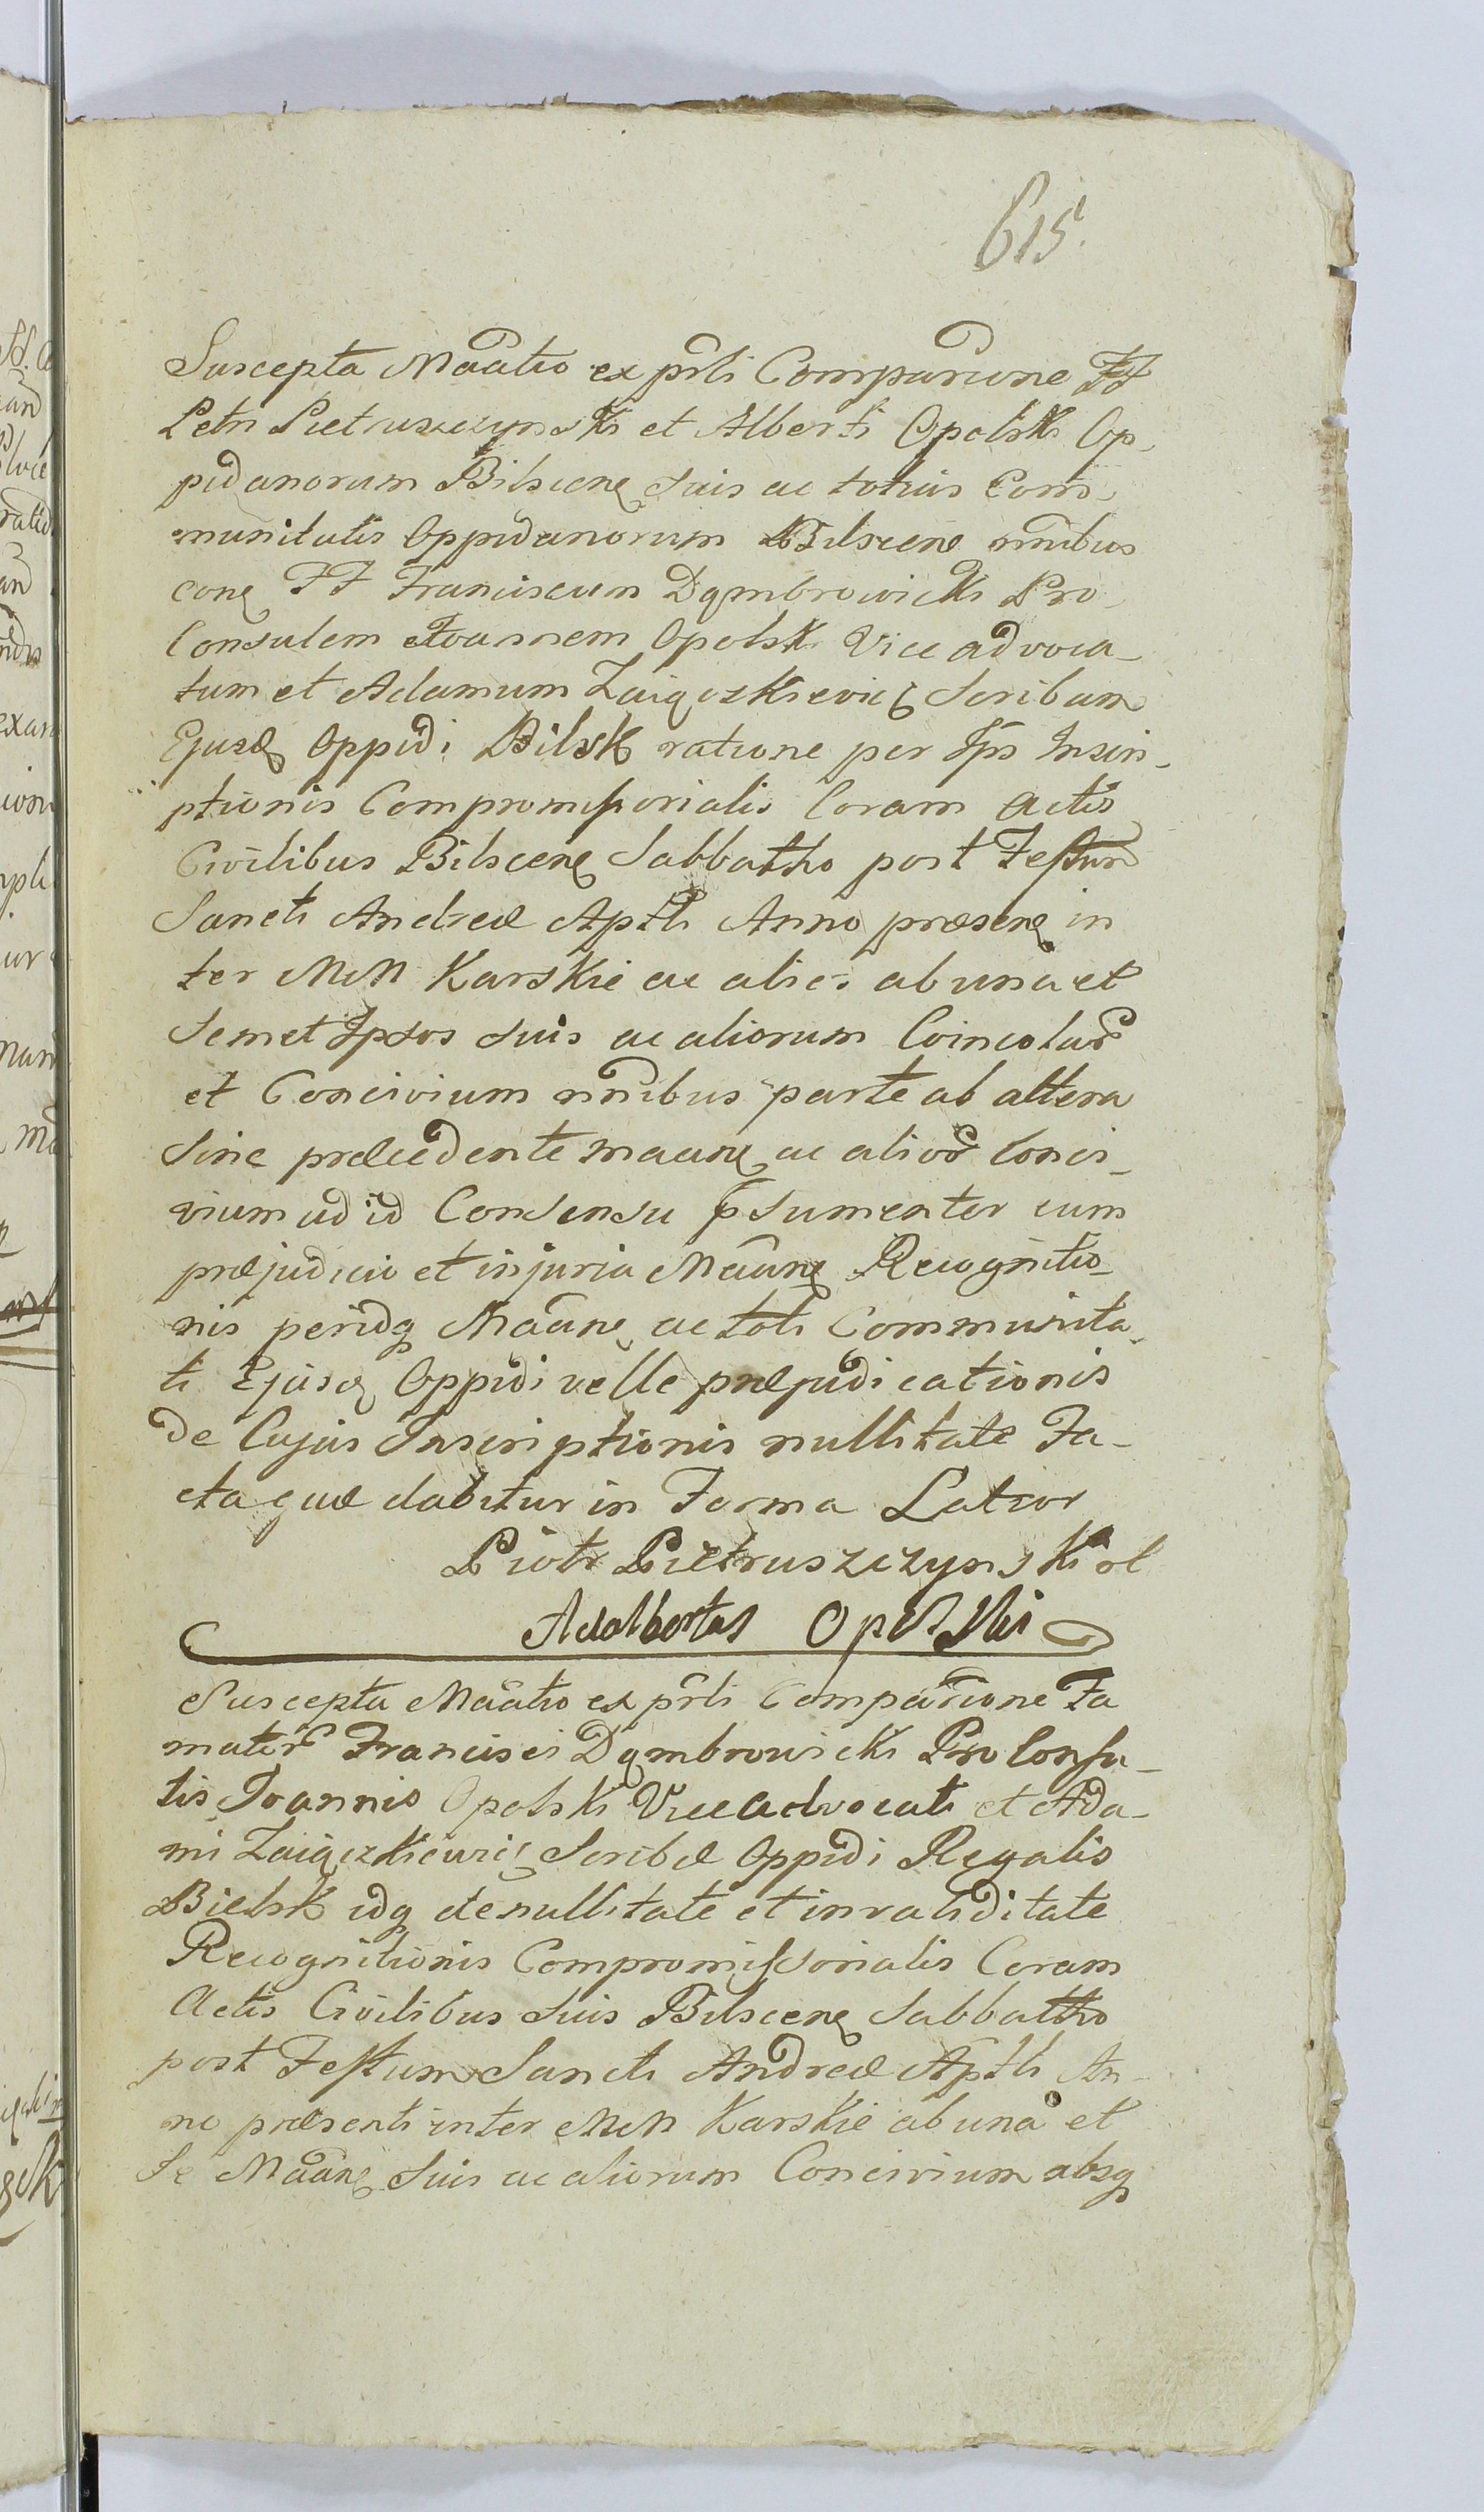 615.
Suscepta Maãtio ex prñti Comparitione FF
Petri Pietruszczynski et Alberti Opolski Op-
pidanorum Bilscen suis ac totius Com-
munitatis Oppidanorum Bilscen nñibus
con FF Franciscum Dąmbrowicki Pro
Consulem Joannem Opolski Vice advoca-
tum et Adamum Zaigczkiewicz Scribam
Ejusd Oppidi Bilsk ratione per Ips Inscri-
ptionis Compromissorialis Coram Actis
Civilibus Bilscen Sabbatho post Festum
Sancti Andreæ Aptli Anno præsen in
ter MM Karskie ac alios ab una et
Semet Ipsos suis ac aliorum Coincolar
et Concivium nñibus parte ab altera
Sine præcedente maãne ac alior Conci-
vium ad id Consensu præsumenter cum
præjudicio et injuria Maãne Recognitio-
nis peridq Maãne ac toti Communita-
ti Ejusd Oppidi velle præjudicationis
De Cujus Inscriptionis nullitate Fa-
cta quæ dabitur in Forma Latior
Piotr Pietruszczynski et
Adalbertus Opolski
Suscepta Maãtio ex prñti Comparitione Fa
mator Francisci Dąmbrowicki Pro Consu-
lis Joannis Opolski Vice advocati et Ada-
mi Zaigczkiewicz Scribæ Oppidi Regalis
Bielsk idq de nullitate et invaliditate
Recognitionis Compromissorialis Coram
Actis Civilibus suis Bilscen Sabbatho
post Festum Sancti Andreæ Aptli An-
no præsenti inter MM Karskie ab una et
Se Maãne suis ac aliorum Concivium absq